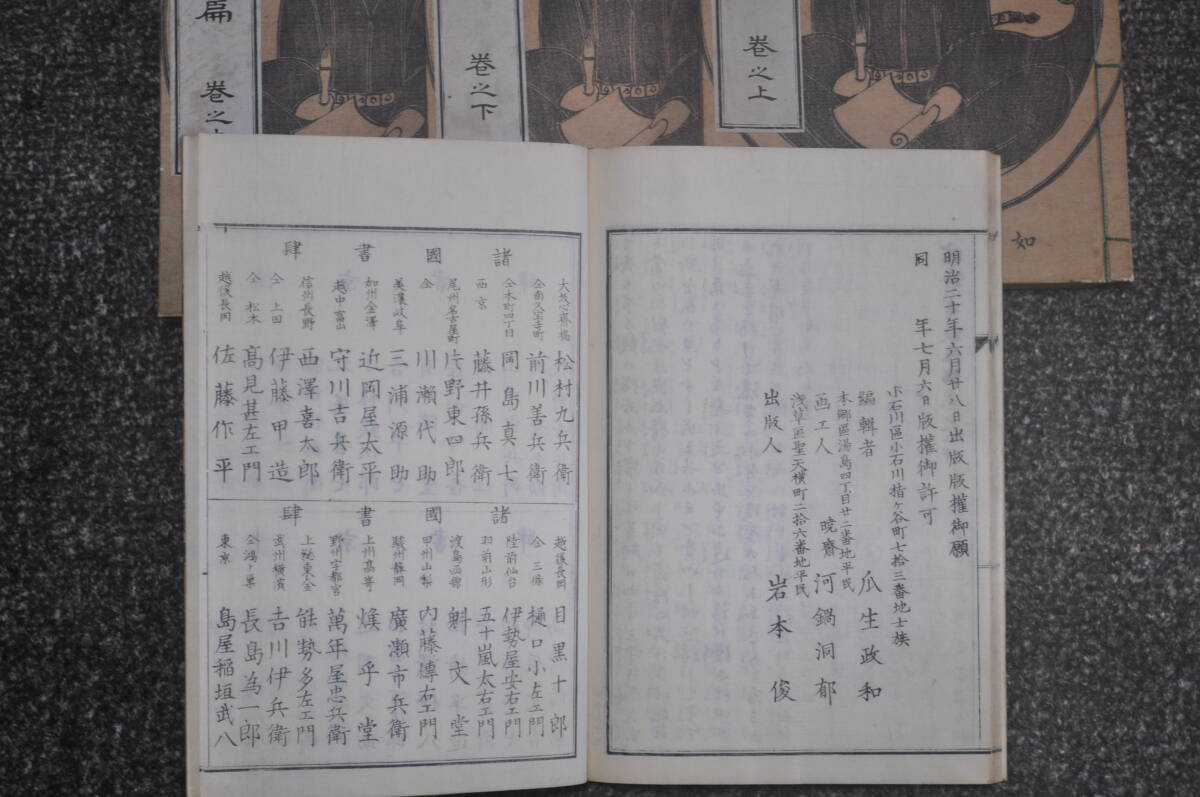 篇 巻之上
巻之下
巻之上
如
明治二十年六月廿八日出版版權御願
同 年七月六日版權御許可
小石川區小石川指ヶ谷町七拾三番地士族
編輯者 瓜生政和
本郷區湯島四丁目廿二番地平民
画工人 暁齋 河鍋洞郁
浅草區聖天横町二拾六番地平民
出版人 岩本俊
諸國書肆
大坂心齋橋 松村九兵衛
仝南久宝寺町 前川善兵衛
仝本町四丁目 岡島真七
西京 藤井孫兵衛
尾州名古屋町 片野東四郎
仝 川瀬代助
美濃岐阜 三浦源助
加州金澤 近岡屋太平
越中富山 守川吉兵衛
信州長野 西澤喜太郎
仝上田 伊藤甲造
仝松本 髙見甚左エ門
越後長岡 佐藤作平
諸國書肆
越後長岡 目黒十郎
仝三條 樋口小左エ門
陸前仙台 伊勢屋安右エ門
羽前山形 五十嵐太右エ門
渡島函館 魁文堂
甲州山梨 内藤傳右エ門
駿州靜岡 廣瀬市兵衛
上州髙嵜 煥乎堂
野州宇都宮 萬年屋忠兵衛
上総東金 能勢多左エ門
武州横濱 吉川伊兵衛
仝鴻ノ巣 長島為一郎
東京 島屋稲垣武八